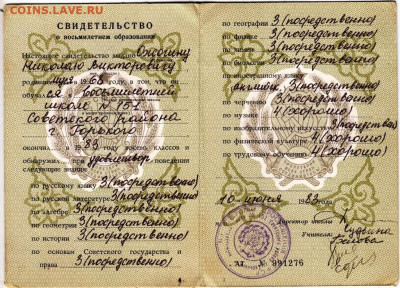 COINS.LAV.RU
СВИДЕТЕЛЬСТВО
о восьмилетнем образовании
Настоящее свидетельство выдано
Николаю Викторовичу
в том, что он
обучался в восьмилетней
школе № 151
Советского района
г. Горького
окончил в 1983 году восемь классов и
обнаружил при
поведении следующие знания:
по русскому языку 3 (посредственно)
по русской литературе 3 (посредственно)
по алгебре 3 (посредственно)
по геометрии 3 (посредственно)
по истории 3 (посредственно)
по основам Советского государства и
права 3 (посредственно)
по географии 3 (посредственно)
по физике 3 (посредственно)
по химии 3 (посредственно)
по биологии 3 (посредственно)
по иностранному языку
3 (посредственно)
по черчению 3 (посредственно)
по музыке 4 (хорошо)
по изобразительному искусству 3 (посредственно)
по физической культуре 4 (хорошо)
по трудовому обучению 4 (хорошо)
10 июня 1983 года
Директор школы
Учителя:
№ 391276